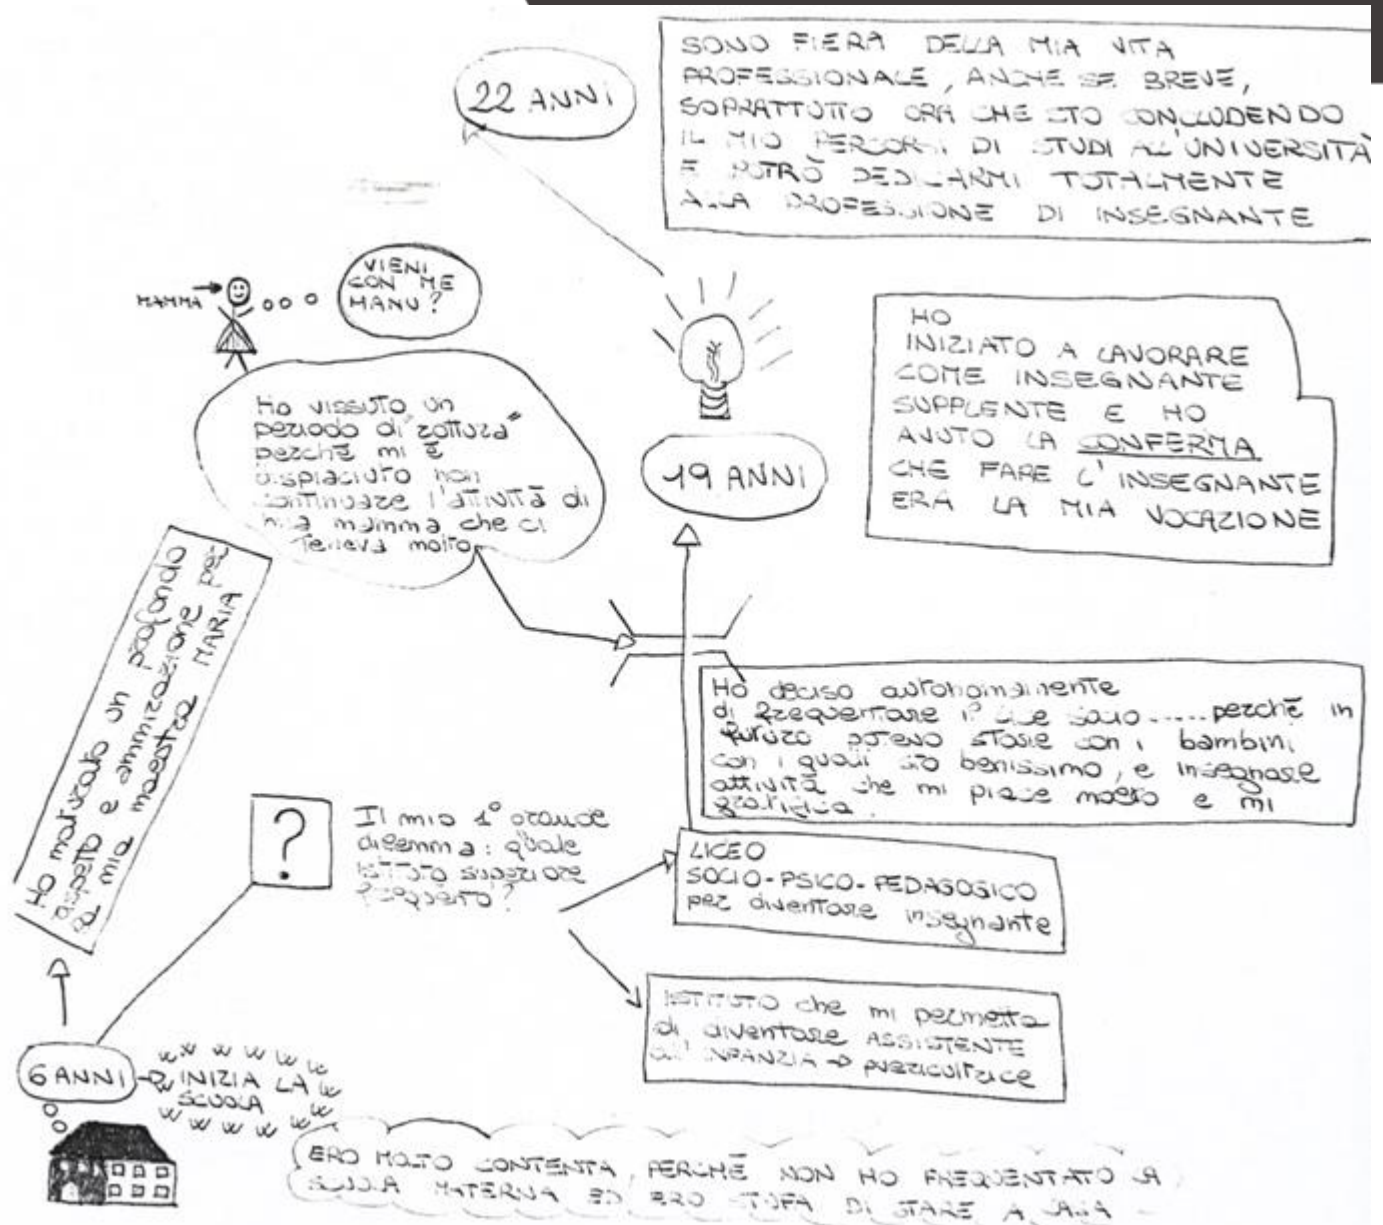 22 ANNI
SONO FIERA DELLA MIA VITA
PROFESSIONALE, ANCHE SE BREVE,
SOPRATTUTTO ORA CHE STO CONCLUDENDO
IL MIO PERCORSO DI STUDI ALL'UNIVERSITÀ
E POTRÒ DEDICARMI TOTALMENTE
ALLA PROFESSIONE DI INSEGNANTE
MAMMA
VIENI
CON ME
MANU?
Ho vissuto un
periodo di "rottura"
perchè mi è
dispiaciuto non
continuare l'attività di
mia mamma che ci
teneva molto
19 ANNI
HO
INIZIATO A LAVORARE
COME INSEGNANTE
SUPPLENTE E HO
AVUTO LA CONFERMA
CHE FARE L'INSEGNANTE
ERA LA MIA VOCAZIONE
Ho deciso autonomamente
di frequentare il liceo socio.....perchè in
futuro potevo stare con i bambini
con i quali sto benissimo, e insegnare
attività che mi piace molto e mi
gratifica.
Ho maturato un profondo
rispetto e ammirazione per
la mia maestra MARIA
?
Il mio 1° grande
dilemma: quale
istituto superiore
frequento?
LICEO
SOCIO-PSICO-PEDAGOGICO
per diventare insegnante
ISTITUTO che mi permetta
di diventare ASSISTENTE
all'INFANZIA → puericultrice
6 ANNI
INIZIA LA
SCUOLA
ERO MOLTO CONTENTA, PERCHÈ NON HO FREQUENTATO LA
SCUOLA MATERNA ED ERO STUFA DI STARE A CASA